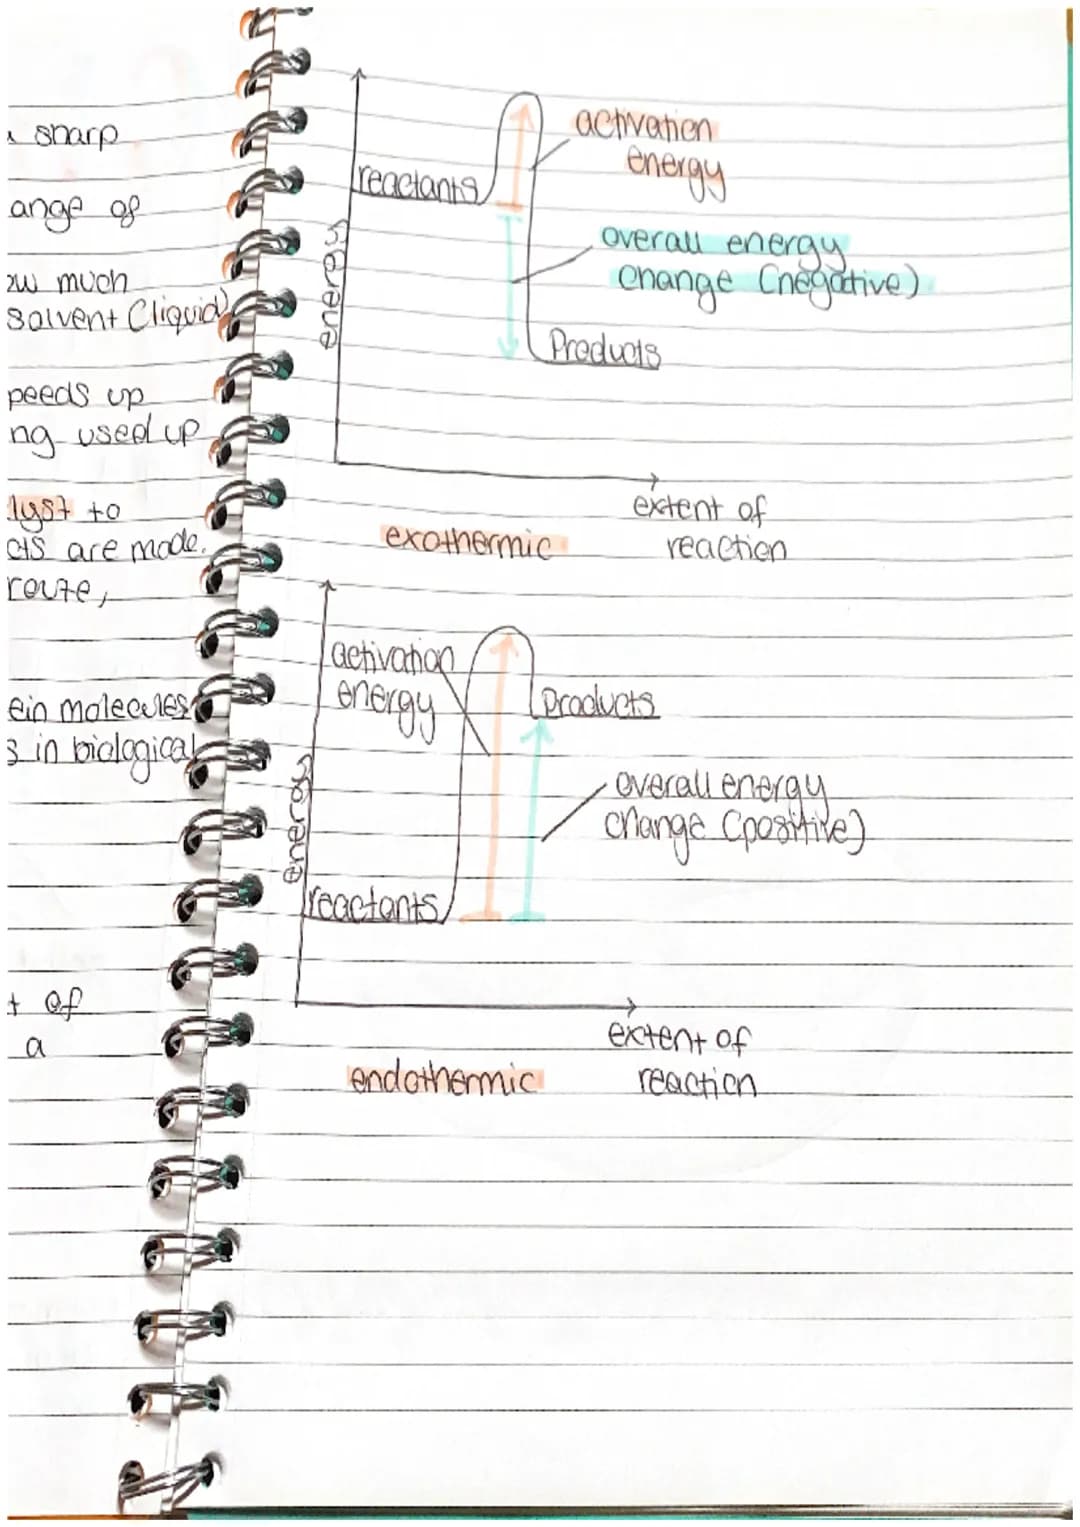 sharp
ange of
ow much
solvent (liquid)
peeds up
ng used up
lyst to
cts are made.
route,
ein molecules
s in biological
t of
a
activation
energy
reactants
overall energy
change (negative)
energy
Products
extent of
reaction
exothermic
activation
energy
Products
overall energy
change (positive)
energy
reactants
extent of
reaction
endothermic